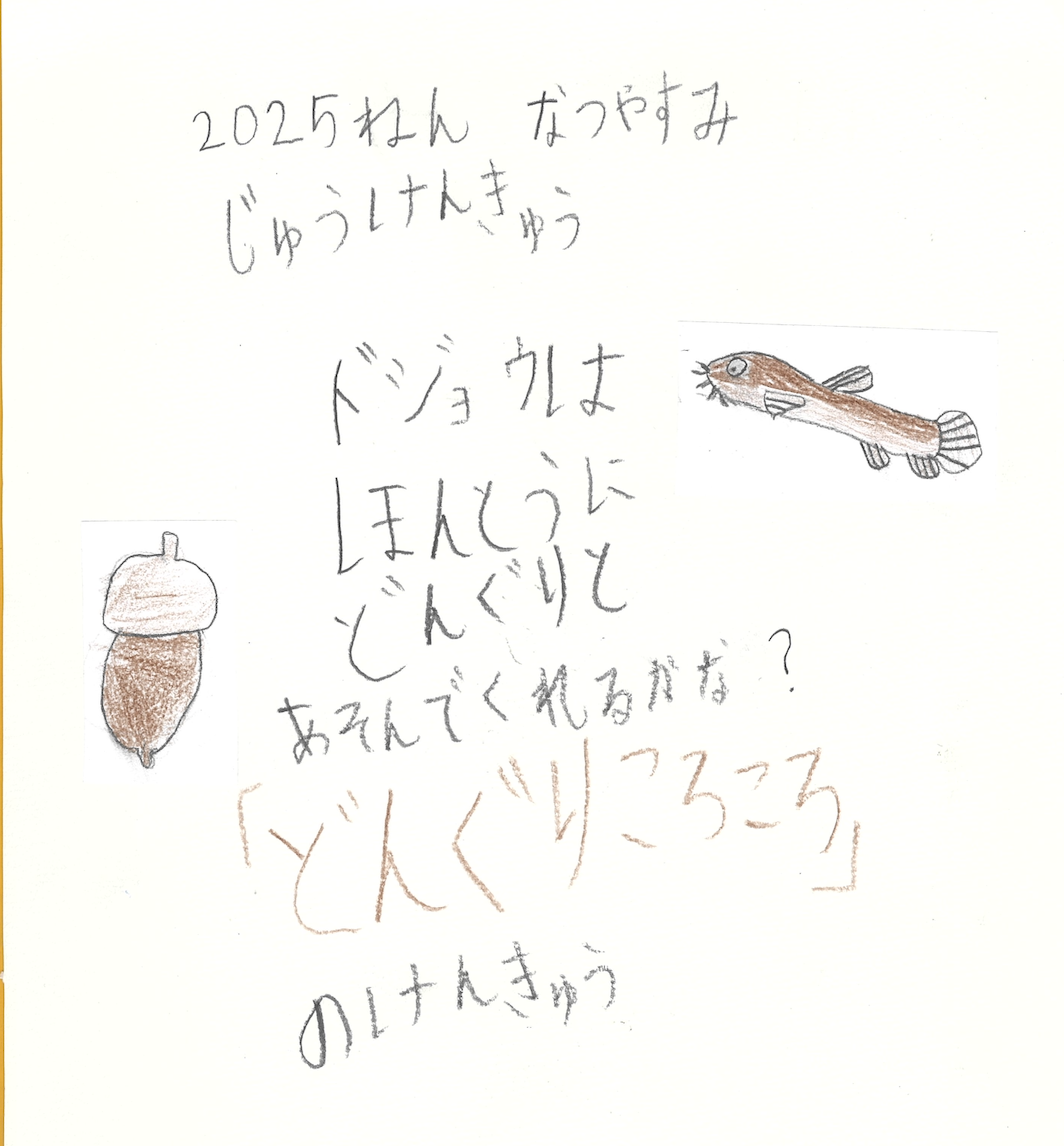 2025ねん なつやすみ
じゅうけんきゅう
ドジョウは
ほんとうに
どんぐりと
あそんでくれるかな?
「どんぐりころころ」
のけんきゅう